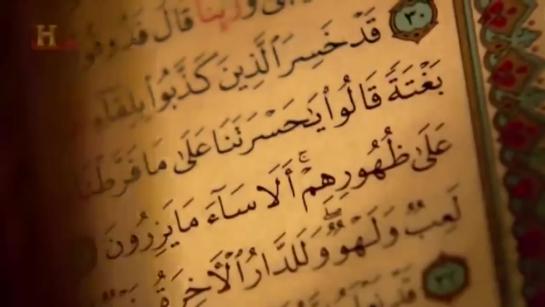 H
قَالَ
٣٠ قَدْ خَسِرَ ٱلَّذِينَ كَذَّبُوا۟ بِلِقَآءِ
بَغْتَةً قَالُوا۟ يَٰحَسْرَتَنَا عَلَىٰ مَا فَرَّطْنَا
عَلَىٰ ظُهُورِهِمْ ۚ أَلَا سَآءَ مَا يَزِرُونَ
لَعِبٌ وَلَهْوٌ ۖ وَلَلدَّارُ ٱلْءَاخِرَةُ
٣٢ قَدْ